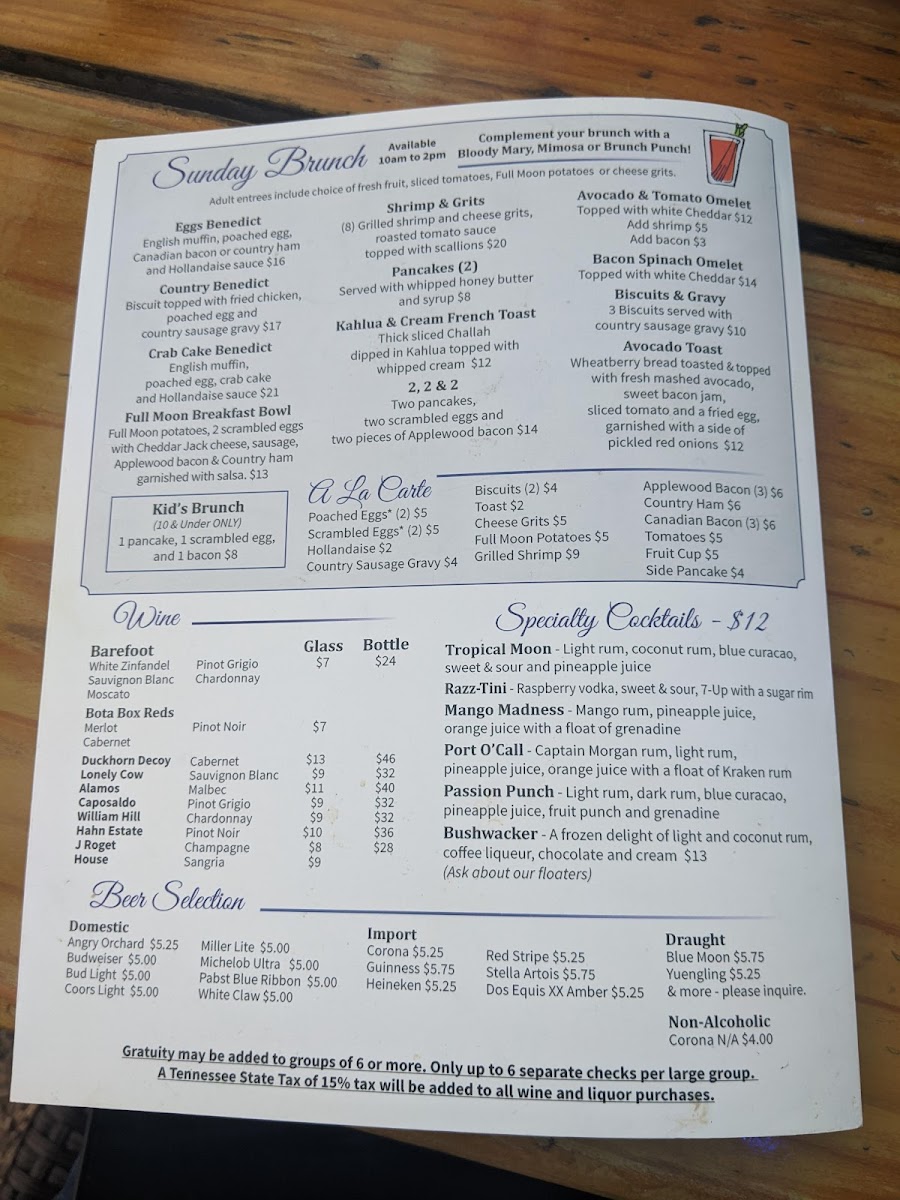 Sunday Brunch
Available
10am to 2pm
Complement your brunch with a
Bloody Mary, Mimosa or Brunch Punch!
Adult entrees include choice of fresh fruit, sliced tomatoes, Full Moon potatoes or cheese grits.
Eggs Benedict
English muffin, poached egg,
Canadian bacon or country ham
and Hollandaise sauce $16
Country Benedict
Biscuit topped with fried chicken,
poached egg and
country sausage gravy $17
Crab Cake Benedict
English muffin,
poached egg, crab cake
and Hollandaise sauce $21
Full Moon Breakfast Bowl
Full Moon potatoes, 2 scrambled eggs
with Cheddar Jack cheese, sausage,
Applewood bacon & Country ham
garnished with salsa. $13
Shrimp & Grits
(8) Grilled shrimp and cheese grits,
roasted tomato sauce
topped with scallions $20
Pancakes (2)
Served with whipped honey butter
and syrup $8
Kahlua & Cream French Toast
Thick sliced Challah
dipped in Kahlua topped with
whipped cream $12
2, 2 & 2
Two pancakes,
two scrambled eggs and
two pieces of Applewood bacon $14
Avocado & Tomato Omelet
Topped with white Cheddar $12
Add shrimp $5
Add bacon $3
Bacon Spinach Omelet
Topped with white Cheddar $14
Biscuits & Gravy
3 Biscuits served with
country sausage gravy $10
Avocado Toast
Wheatberry bread toasted & topped
with fresh mashed avocado,
sweet bacon jam,
sliced tomato and a fried egg,
garnished with a side of
pickled red onions $12
Kid's Brunch
(10 & Under ONLY)
1 pancake, 1 scrambled egg,
and 1 bacon $8
A La Carte
Poached Eggs* (2) $5
Scrambled Eggs* (2) $5
Hollandaise $2
Country Sausage Gravy $4
Biscuits (2) $4
Toast $2
Cheese Grits $5
Full Moon Potatoes $5
Grilled Shrimp $9
Applewood Bacon (3) $6
Country Ham $6
Canadian Bacon (3) $6
Tomatoes $5
Fruit Cup $5
Side Pancake $4
Wine
Glass Bottle
Barefoot
White Zinfandel Pinot Grigio $7 $24
Sauvignon Blanc Chardonnay
Moscato
Bota Box Reds
Merlot Pinot Noir $7
Cabernet
Duckhorn Decoy Cabernet $13 $46
Lonely Cow Sauvignon Blanc $9 $32
Alamos Malbec $11 $40
Caposaldo Pinot Grigio $9 $32
William Hill Chardonnay $9 $32
Hahn Estate Pinot Noir $10 $36
J Roget Champagne $8 $28
House Sangria $9
Specialty Cocktails - $12
Tropical Moon - Light rum, coconut rum, blue curacao,
sweet & sour and pineapple juice
Razz-Tini - Raspberry vodka, sweet & sour, 7-Up with a sugar rim
Mango Madness - Mango rum, pineapple juice,
orange juice with a float of grenadine
Port O'Call - Captain Morgan rum, light rum,
pineapple juice, orange juice with a float of Kraken rum
Passion Punch - Light rum, dark rum, blue curacao,
pineapple juice, fruit punch and grenadine
Bushwacker - A frozen delight of light and coconut rum,
coffee liqueur, chocolate and cream $13
(Ask about our floaters)
Beer Selection
Domestic
Angry Orchard $5.25
Budweiser $5.00
Bud Light $5.00
Coors Light $5.00
Miller Lite $5.00
Michelob Ultra $5.00
Pabst Blue Ribbon $5.00
White Claw $5.00
Import
Corona $5.25
Guinness $5.75
Heineken $5.25
Red Stripe $5.25
Stella Artois $5.75
Dos Equis XX Amber $5.25
Draught
Blue Moon $5.75
Yuengling $5.25
& more - please inquire.
Non-Alcoholic
Corona N/A $4.00
Gratuity may be added to groups of 6 or more. Only up to 6 separate checks per large group.
A Tennessee State Tax of 15% tax will be added to all wine and liquor purchases.